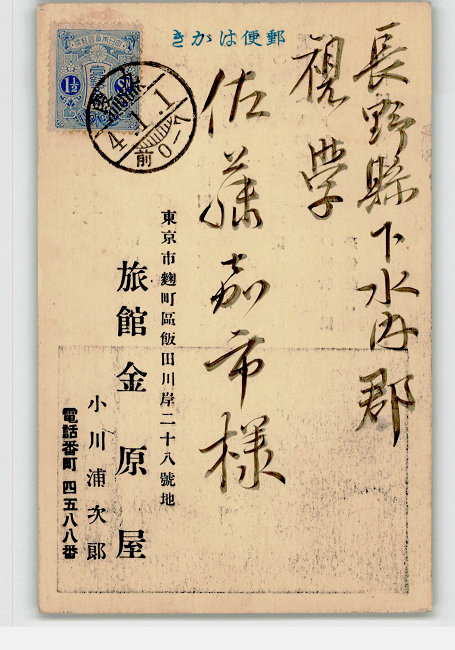 郵便はかき
長野縣下水内郡
視學
佐藤嘉市様
東京市麹町區飯田川岸二十八號地
旅館金原屋
小川浦次郎
電話番町 四五八八番
1½
4.1.1
前0-8